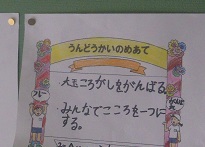 うんどうかいのめあて
大玉ころがしをがんばる。
みんなでこころを一つに
する。
フレー